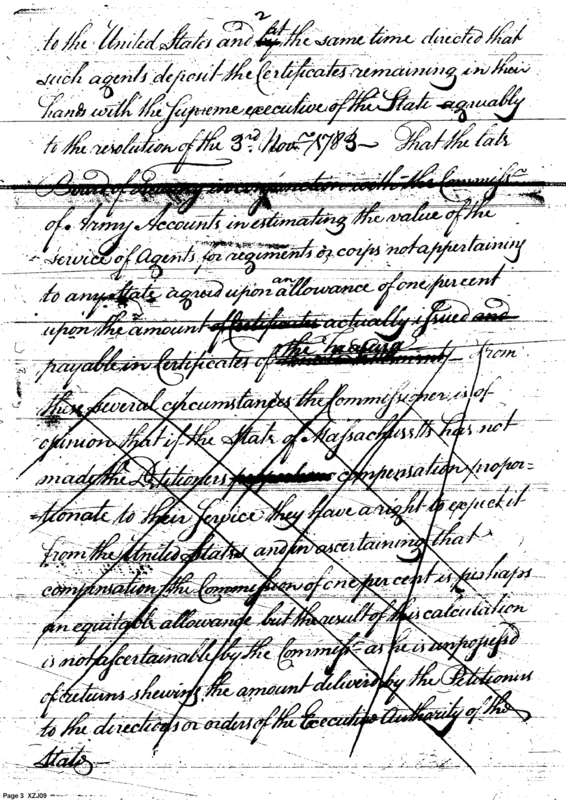 2
to the United States and at the same time directed that
such agents deposit the Certificates remaining in their
hands with the Supreme executive of the State agreeably
to the resolution of the 3rd. Novr. 1783— That the late
Board of Treasury in conjunction with the Commissr.
of Army Accounts in estimating the value of the
service of Agents for regiments or corps not appertaining
to any State agreed upon an allowance of one per cent
upon the amount of Certificates actually issued and
payable in Certificates of the — from
these several circumstances the Commissioner is of
opinion that if the State of Massachusetts has not
made the Petitioners compensation propor=
=tionate to their service they have a right to expect it
from the United States and in ascertaining that
compensation the Commission of one per cent is perhaps
an equitable allowance but the result of this calculation
is not ascertainable by the Commissr. as he is unpossess'd
of returns shewing the amount delivered by the Petitioners
to the directions or orders of the Executive Authority of the
State—
Page 3 XZJ09